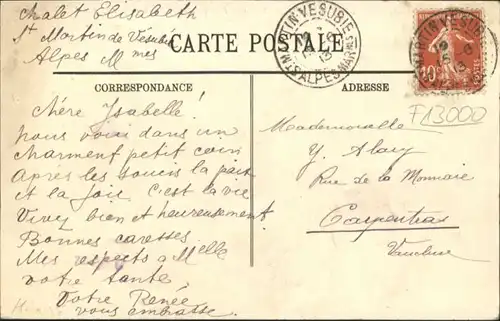 Chalet Elisabeth
St Martin de Vésubie
Alpes Mmes
CARTE POSTALE
CORRESPONDANCE
ADRESSE
Chère Ysabelle!
nous voici dans un
charmant petit coin
Après les soucis la paix
et la joie. C'est la vie
Vivez bien et heureusement
Bonnes caresses.
Mes respects a Melle
votre tante
Votre Renée
vous embrasse.
Mademoiselle
Y. Alary
Rue de la Monnaie
Carpentras
Vaucluse
F13000
MARTIN VESUBIE
ALPES MARMES
MARTIN VESUBIE
10